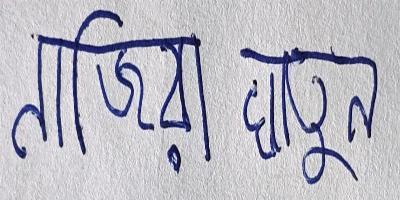 নাজিরা খাতুন